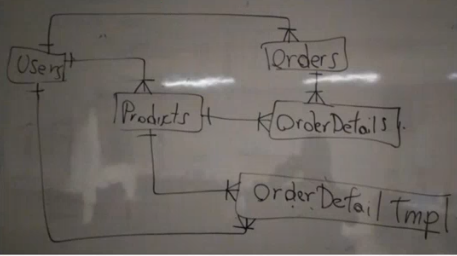 Orders
Users
Products
OrderDetails
OrderDetail Tmp